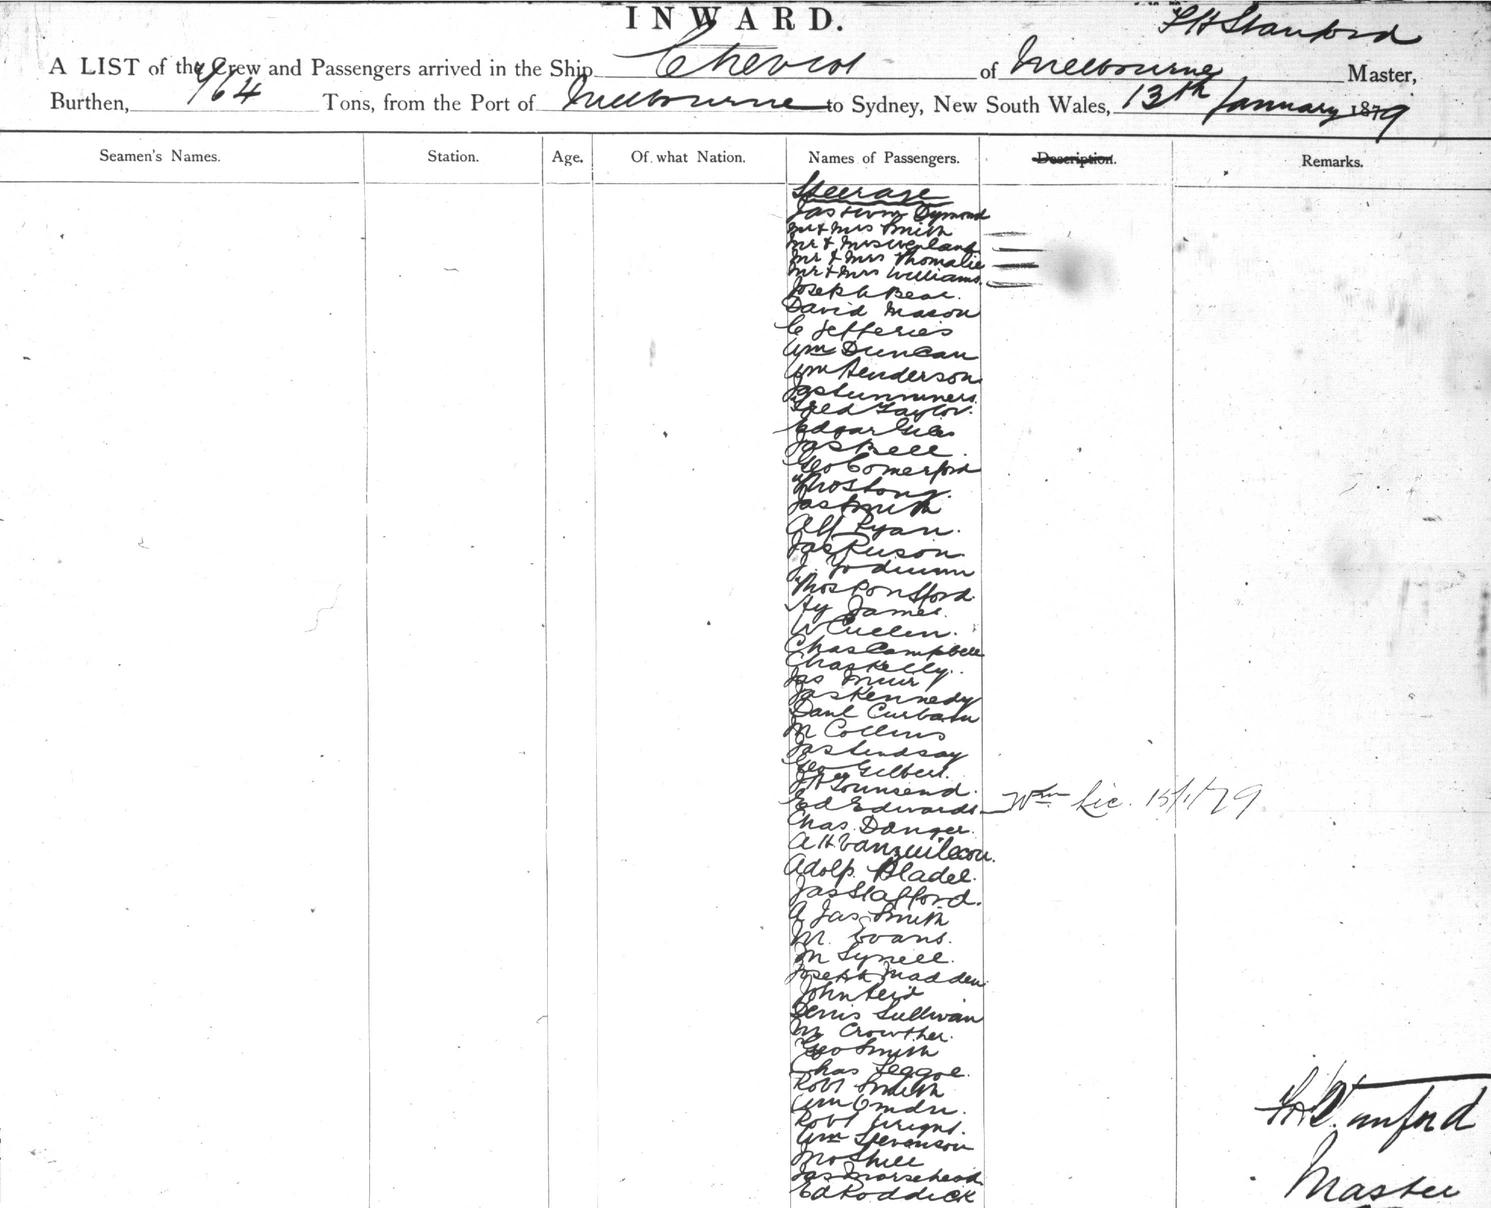 INWARD.
F H Stanford
A LIST of the Crew and Passengers arrived in the Ship Cheviot of Melbourne Master,
Burthen, 764 Tons, from the Port of Melbourne to Sydney, New South Wales, 13th January 1879
Seamen's Names. Station. Age. Of what Nation. Names of Passengers. Description. Remarks.
Steerage
Jas Dymond
Mr & Mrs Smith
Mr & Mrs
Mr & Mrs Thomalie
Mr & Mrs Williams.
Joseph Bear.
David Mason
C Jefferies
Wm Duncan
Wm Henderson
Jas Summers.
Fred Taylor.
Edgar Giles
Jas Bell.
Geo Comerford
Thos Long.
Jas Smith
Alf Ryan.
Jas
J.
Thos Ponsford
Hy James.
W Cullen.
Chas Campbell
Chas Kelly.
Jas Muir
Jas Kennedy
Danl
M Collins
Jas Lindsay
Geo Gilbert.
J H Townsend.
Ed Edwards Wm Lic. 15/1/79
Chas Danger.
A H
Adolp. Bladel.
Jas Stafford.
A Jas Smith
M. Evans.
M Lynell.
Joseph Madden
John Reid
Denis Sullivan
M Crowther.
Geo Smith
Chas Leggoe.
Robt Smith
Wm
Robt Wright.
Wm Stevenson
Thos Hill
Jas Morsehead
Ed Roddick
F H Stanford
Master